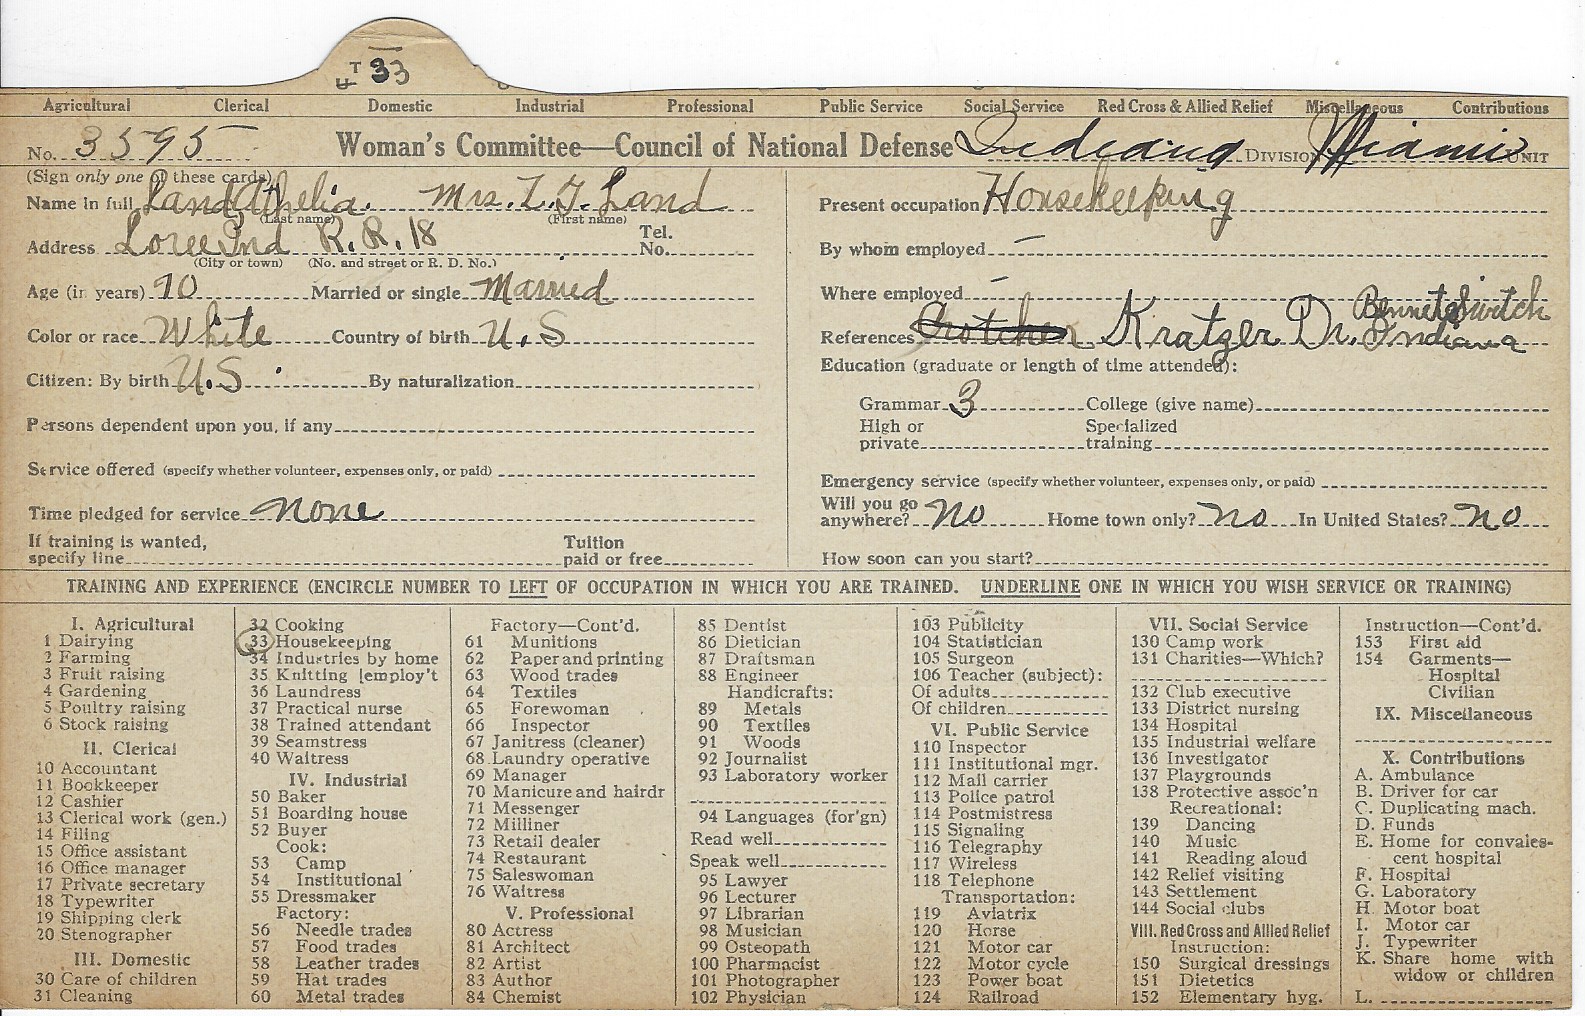 33
Agricultural Clerical Domestic Industrial Professional Public Service Social Service Red Cross & Allied Relief Miscellaneous Contributions
No. 3595 Woman's Committee—Council of National Defense Indiana DIVISION Miami UNIT
(Sign only one of these cards)
Name in full Land, Athelia. Mrs. L. F. Land
(Last name) (First name)
Address Loree Ind R.R. 18 Tel. No.
(City or town) (No. and street or R. D. No.)
Age (in years) 70 Married or single Married
Color or race White Country of birth U.S
Citizen: By birth U.S. By naturalization
Persons dependent upon you, if any
Service offered (specify whether volunteer, expenses only, or paid)
Time pledged for service none
If training is wanted, specify line Tuition paid or free
Present occupation Housekeeping
By whom employed —
Where employed —
References Kratzer Dr. Bennets Switch Indiana
Education (graduate or length of time attended):
Grammar 3 College (give name)
High or private Specialized training
Emergency service (specify whether volunteer, expenses only, or paid)
Will you go anywhere? no Home town only? no In United States? no
How soon can you start?
TRAINING AND EXPERIENCE (ENCIRCLE NUMBER TO LEFT OF OCCUPATION IN WHICH YOU ARE TRAINED. UNDERLINE ONE IN WHICH YOU WISH SERVICE OR TRAINING)
I. Agricultural
1 Dairying
2 Farming
3 Fruit raising
4 Gardening
5 Poultry raising
6 Stock raising
II. Clerical
10 Accountant
11 Bookkeeper
12 Cashier
13 Clerical work (gen.)
14 Filing
15 Office assistant
16 Office manager
17 Private secretary
18 Typewriter
19 Shipping clerk
20 Stenographer
III. Domestic
30 Care of children
31 Cleaning
32 Cooking
33 Housekeeping
34 Industries by home
35 Knitting [employ't
36 Laundress
37 Practical nurse
38 Trained attendant
39 Seamstress
40 Waitress
IV. Industrial
50 Baker
51 Boarding house
52 Buyer
Cook:
53 Camp
54 Institutional
55 Dressmaker
Factory:
56 Needle trades
57 Food trades
58 Leather trades
59 Hat trades
60 Metal trades
Factory—Cont'd.
61 Munitions
62 Paper and printing
63 Wood trades
64 Textiles
65 Forewoman
66 Inspector
67 Janitress (cleaner)
68 Laundry operative
69 Manager
70 Manicure and hairdr
71 Messenger
72 Milliner
73 Retail dealer
74 Restaurant
75 Saleswoman
76 Waitress
V. Professional
80 Actress
81 Architect
82 Artist
83 Author
84 Chemist
85 Dentist
86 Dietician
87 Draftsman
88 Engineer
Handicrafts:
89 Metals
90 Textiles
91 Woods
92 Journalist
93 Laboratory worker
94 Languages (for'gn)
Read well
Speak well
95 Lawyer
96 Lecturer
97 Librarian
98 Musician
99 Osteopath
100 Pharmacist
101 Photographer
102 Physician
103 Publicity
104 Statistician
105 Surgeon
106 Teacher (subject):
Of adults
Of children
VI. Public Service
110 Inspector
111 Institutional mgr.
112 Mail carrier
113 Police patrol
114 Postmistress
115 Signaling
116 Telegraphy
117 Wireless
118 Telephone
Transportation:
119 Aviatrix
120 Horse
121 Motor car
122 Motor cycle
123 Power boat
124 Railroad
VII. Social Service
130 Camp work
131 Charities—Which?
132 Club executive
133 District nursing
134 Hospital
135 Industrial welfare
136 Investigator
137 Playgrounds
138 Protective assoc'n
Recreational:
139 Dancing
140 Music
141 Reading aloud
142 Relief visiting
143 Settlement
144 Social clubs
VIII. Red Cross and Allied Relief
Instruction:
150 Surgical dressings
151 Dietetics
152 Elementary hyg.
Instruction—Cont'd.
153 First aid
154 Garments—
Hospital
Civilian
IX. Miscellaneous
X. Contributions
A. Ambulance
B. Driver for car
C. Duplicating mach.
D. Funds
E. Home for convales-
cent hospital
F. Hospital
G. Laboratory
H. Motor boat
I. Motor car
J. Typewriter
K. Share home with
widow or children
L.